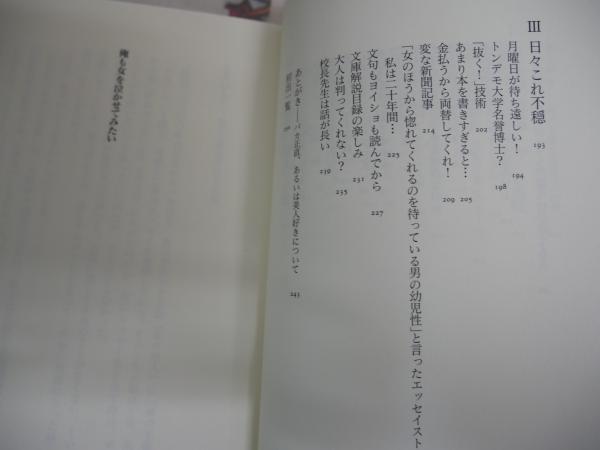 III 日々これ不穏 193
月曜日が待ち遠しい! 194
トンデモ大学名誉博士? 198
「抜く!」技術 202
あまり本を書きすぎると… 205
金払うから両替してくれ! 209
変な新聞記事 214
「女のほうから惚れてくれるのを待っている男の幼児性」と言ったエッセイスト
私は二十年間… 225
文句もヨイショも読んでから 227
文庫解説目録の楽しみ 231
大人は判ってくれない? 235
校長先生は話が長い 239
あとがき——バカ正直、あるいは美人好きについて 243
初出一覧
俺も女を泣かせてみたい